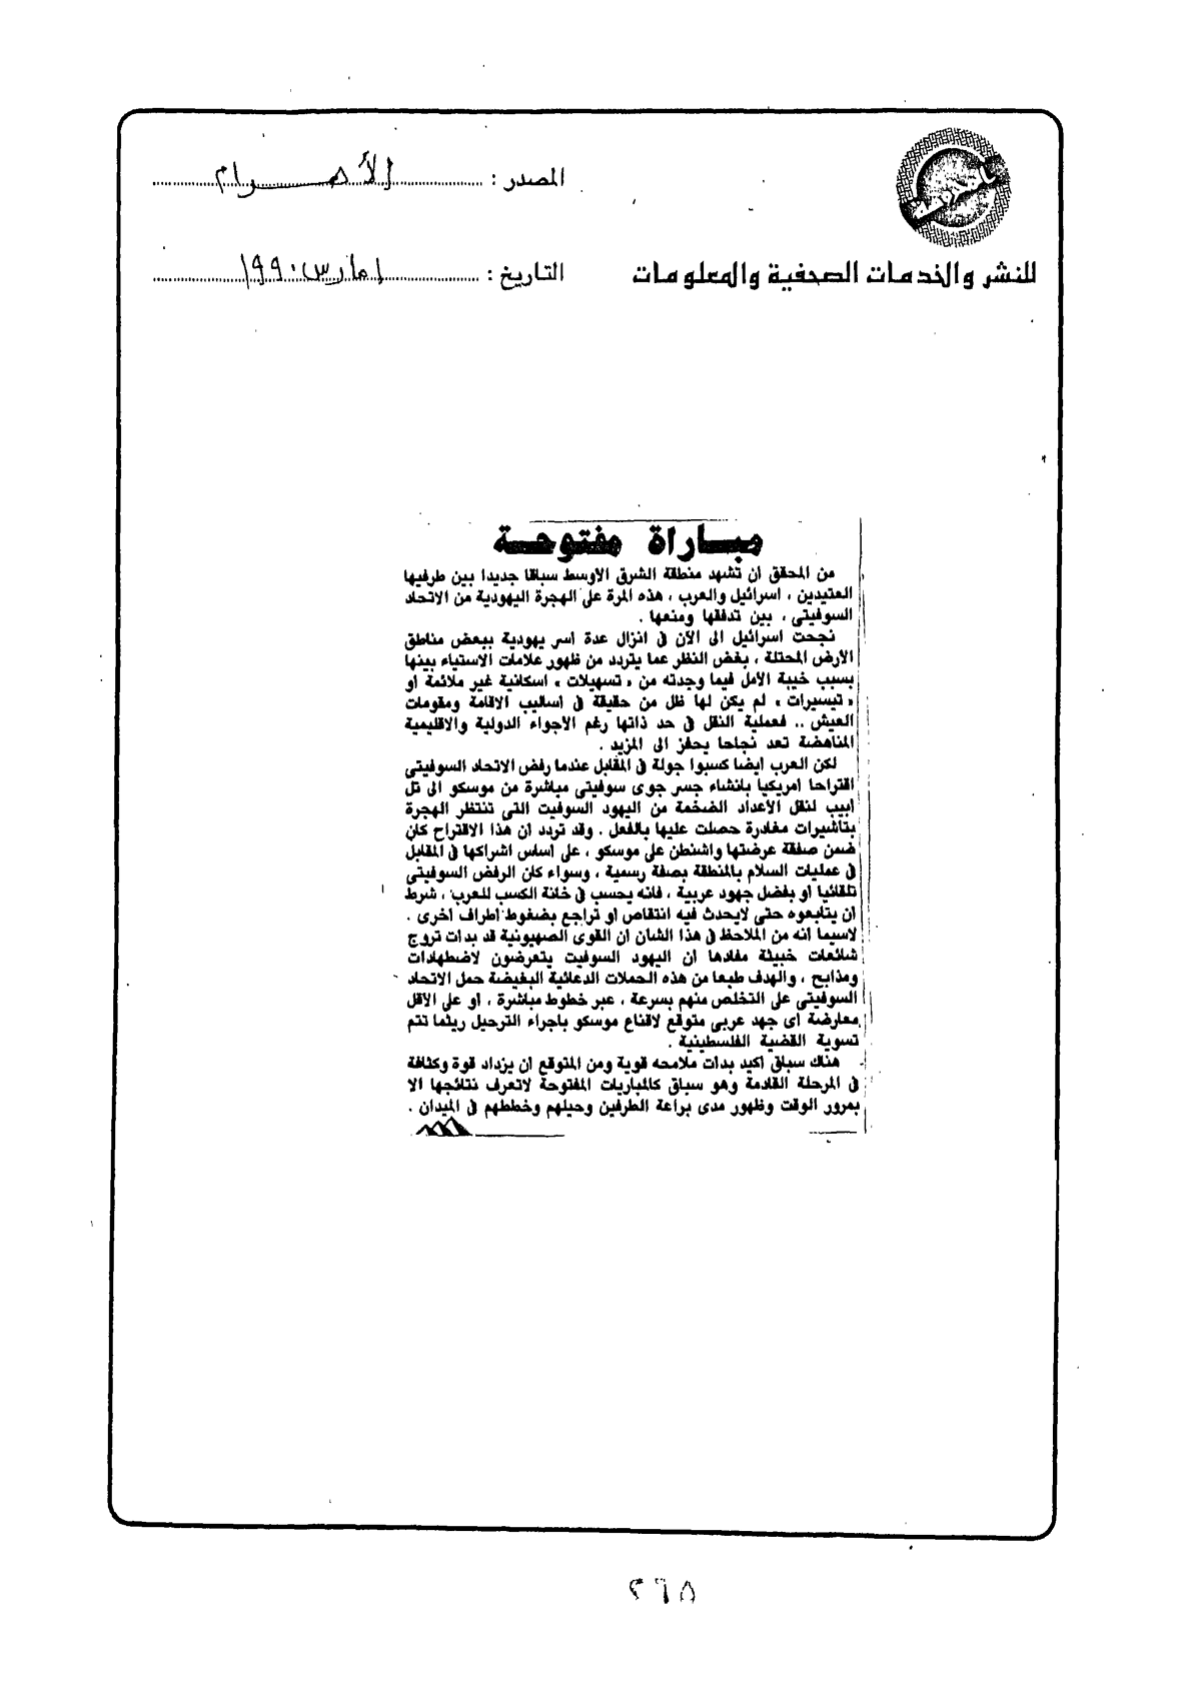 المصدر : الأهرام
للنشر والخدمات الصحفية والمعلومات
التاريخ : ١ مارس ١٩٩٠
مبـاراة مفتوحـة
من المحقق ان تشهد منطقة الشرق الاوسط سباقا جديدا بين طرفيها
العتيدين ، اسرائيل والعرب ، هذه المرة على الهجرة اليهودية من الاتحاد
السوفيتى ، بين تدفقها ومنعها .
نجحت اسرائيل الى الآن فى انزال عدة اسر يهودية ببعض مناطق
الارض المحتلة ، بغض النظر عما يتردد من ظهور علامات الاستياء بينها
بسبب خيبة الامل فيما وجدته من « تسهيلات » اسكانية غير ملائمة او
« تيسيرات » لم يكن لها ظل من حقيقة فى اساليب الاقامة ومقومات
العيش .. فعملية النقل فى حد ذاتها رغم الاجواء الدولية والاقليمية
المناهضة تعد نجاحا يحفز الى المزيد .
لكن العرب ايضا كسبوا جولة فى المقابل عندما رفض الاتحاد السوفيتى
اقتراحا امريكيا بانشاء جسر جوى سوفيتى مباشرة من موسكو الى تل
ابيب لنقل الاعداد الضخمة من اليهود السوفيت التى تنتظر الهجرة
بتاشيرات مغادرة حصلت عليها بالفعل . وقد تردد ان هذا الاقتراح كان
ضمن صفقة عرضتها واشنطن على موسكو ، على اساس اشراكها فى المقابل
فى عمليات السلام بالمنطقة بصفة رسمية ، وسواء كان الرفض السوفيتى
تلقائيا او بفضل جهود عربية ، فانه يحسب فى خانة الكسب للعرب ، شرط
ان يتابعوه حتى لايحدث فيه انتقاص او تراجع بضغوط اطراف اخرى .
لاسيما انه من الملاحظ فى هذا الشان ان القوى الصهيونية قد بدات تروج
شائعات خبيثة مفادها ان اليهود السوفيت يتعرضون لاضطهادات
ومذابح ، والهدف طبعا من هذه الحملات الدعائية البغيضة حمل الاتحاد
السوفيتى على التخلص منهم بسرعة ، عبر خطوط مباشرة ، او على الاقل
معارضة اى جهد عربى متوقع لاقناع موسكو باجراء الترحيل ريثما تتم
تسوية القضية الفلسطينية .
هناك سباق اكيد بدات ملامحه قوية ومن المتوقع ان يزداد قوة وكثافة
فى المرحلة القادمة وهو سباق كالمباريات المفتوحة لاتعرف نتائجها الا
بمرور الوقت وظهور مدى براعة الطرفين وحيلهم وخططهم فى الميدان .
٢٦٥